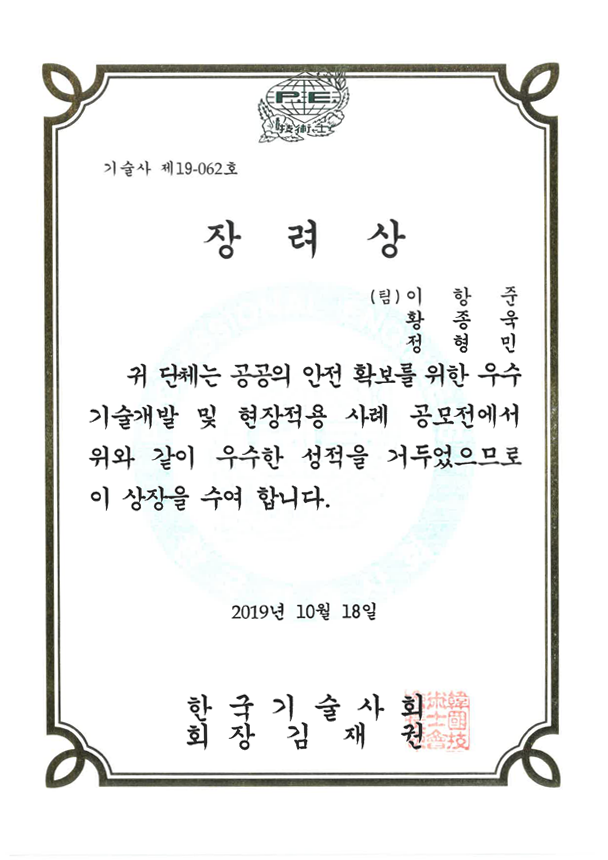 P.E.
技術士
기술사 제19-062호
장 려 상
(팀) 이 항 준
황 종 욱
정 형 민
귀 단체는 공공의 안전 확보를 위한 우수
기술개발 및 현장적용 사례 공모전에서
위와 같이 우수한 성적을 거두었으므로
이 상장을 수여 합니다.
2019년 10월 18일
한 국 기 술 사 회
회 장 김 재 권